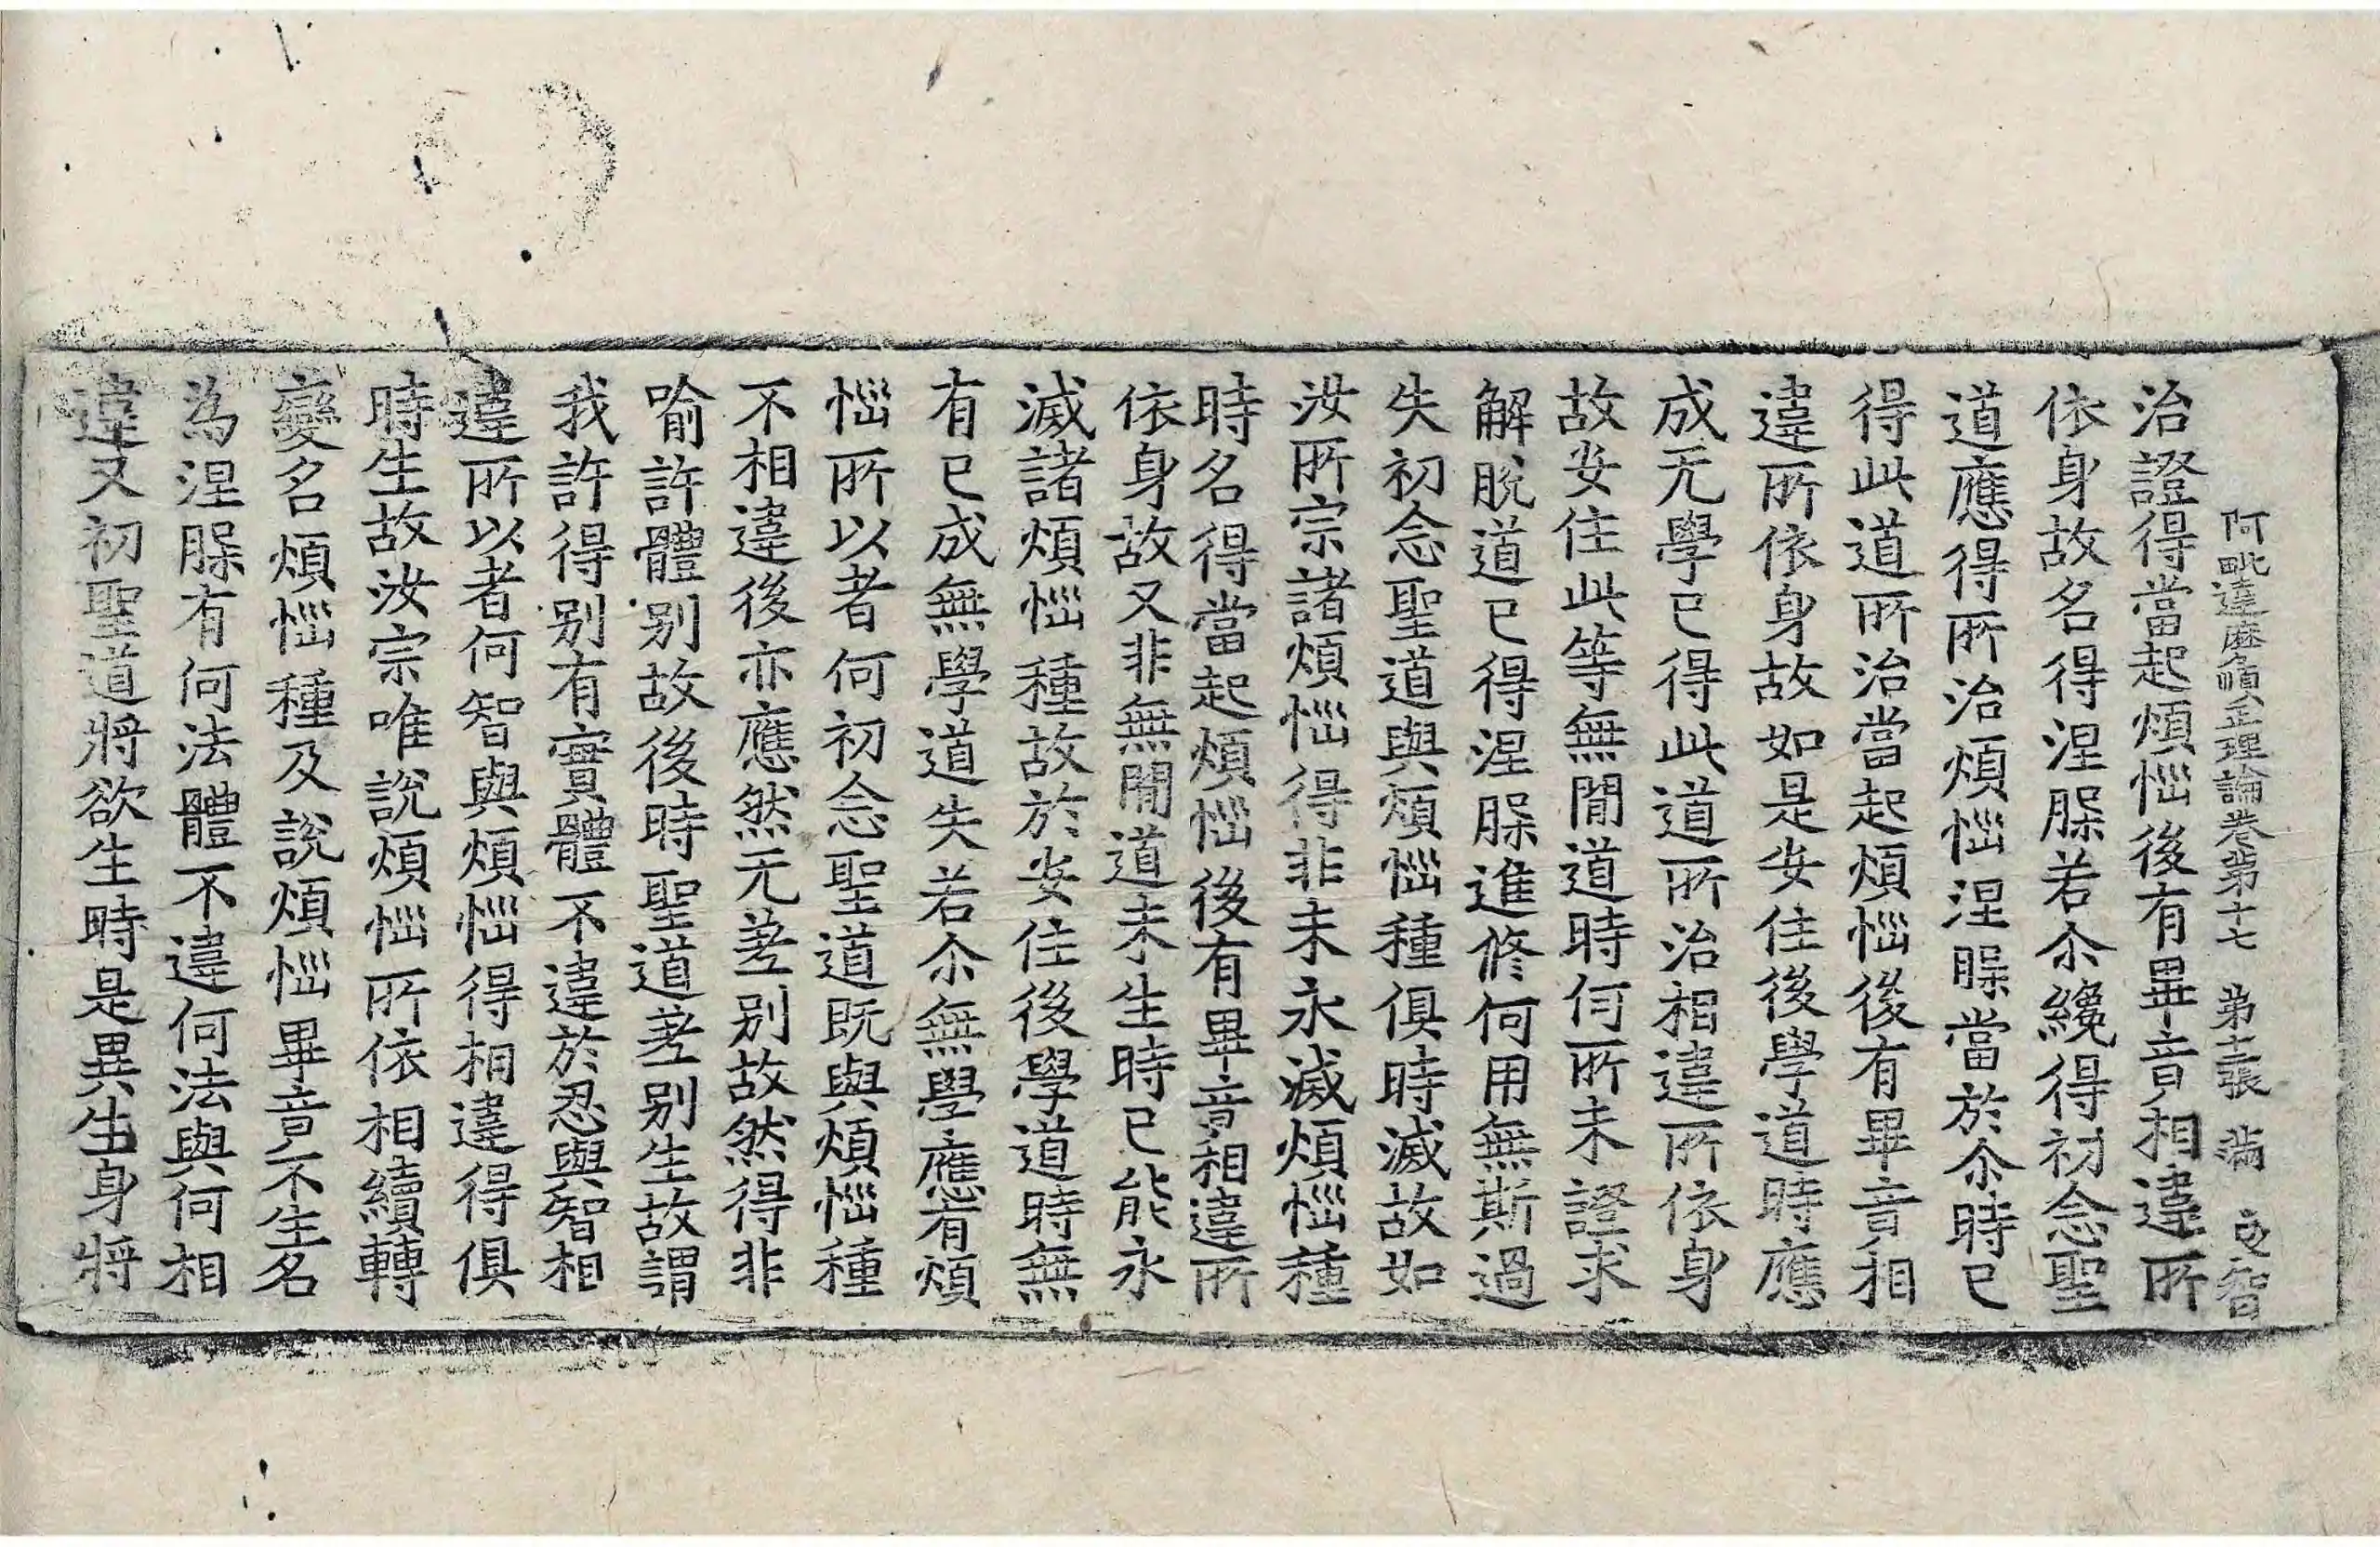 阿毗達磨順正理論卷第十七 第士張 満 文智
治證得當起煩惱後有畢竟相違所
依身故名得涅槃若尒纔得初念聖
道應得所治煩惱涅槃當於尒時已
得此道所治當起煩惱後有畢竟相
違所依身故如是安住後學道時應
成无學已得此道所治相違所依身
故安住此等無閒道時何所未證求
解脫道已得涅槃進修何用無斯過
失初念聖道與煩惱種俱時滅故如
汝所宗諸煩惱得非未永滅煩惱種
時名得當起煩惱後有畢竟相違所
依身故又非無閒道未生時已能永
滅諸煩惱種故於安住後學道時無
有已成無學道失若尒無學應有煩
惱所以者何初念聖道既與煩惱種
不相違後亦應然无差別故然得非
喻許體別故後時聖道差別生故謂
我許得別有實體不違於忍與智相
違所以者何智與煩惱得相違得俱
時生故汝宗唯說煩惱所依相續轉
變名煩惱種及說煩惱畢竟不生名
為涅槃有何法體不違何法與何相
違又初聖道將欲生時是異生身將